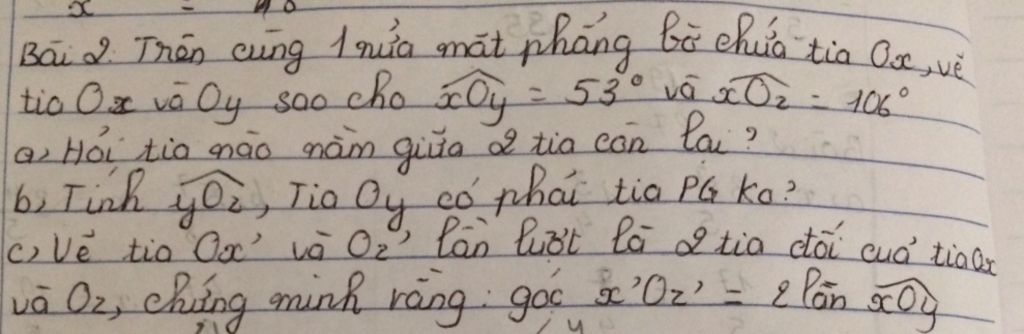 x =
Bài 2. Trên cùng 1 nửa mặt phẳng bờ chứa tia Ox, vẽ
tia Oz và Oy sao cho xOy = 53° và xOz = 106°
a) Hỏi tia nào nằm giữa 2 tia còn lại?
b) Tính yOz, Tia Oy có phải tia PG ko?
c) Vẽ tia Ox' và Oz' lần lượt là 2 tia đối của tia Ox
và Oz, chứng minh rằng: góc x'Oz' = 2 lần xOy